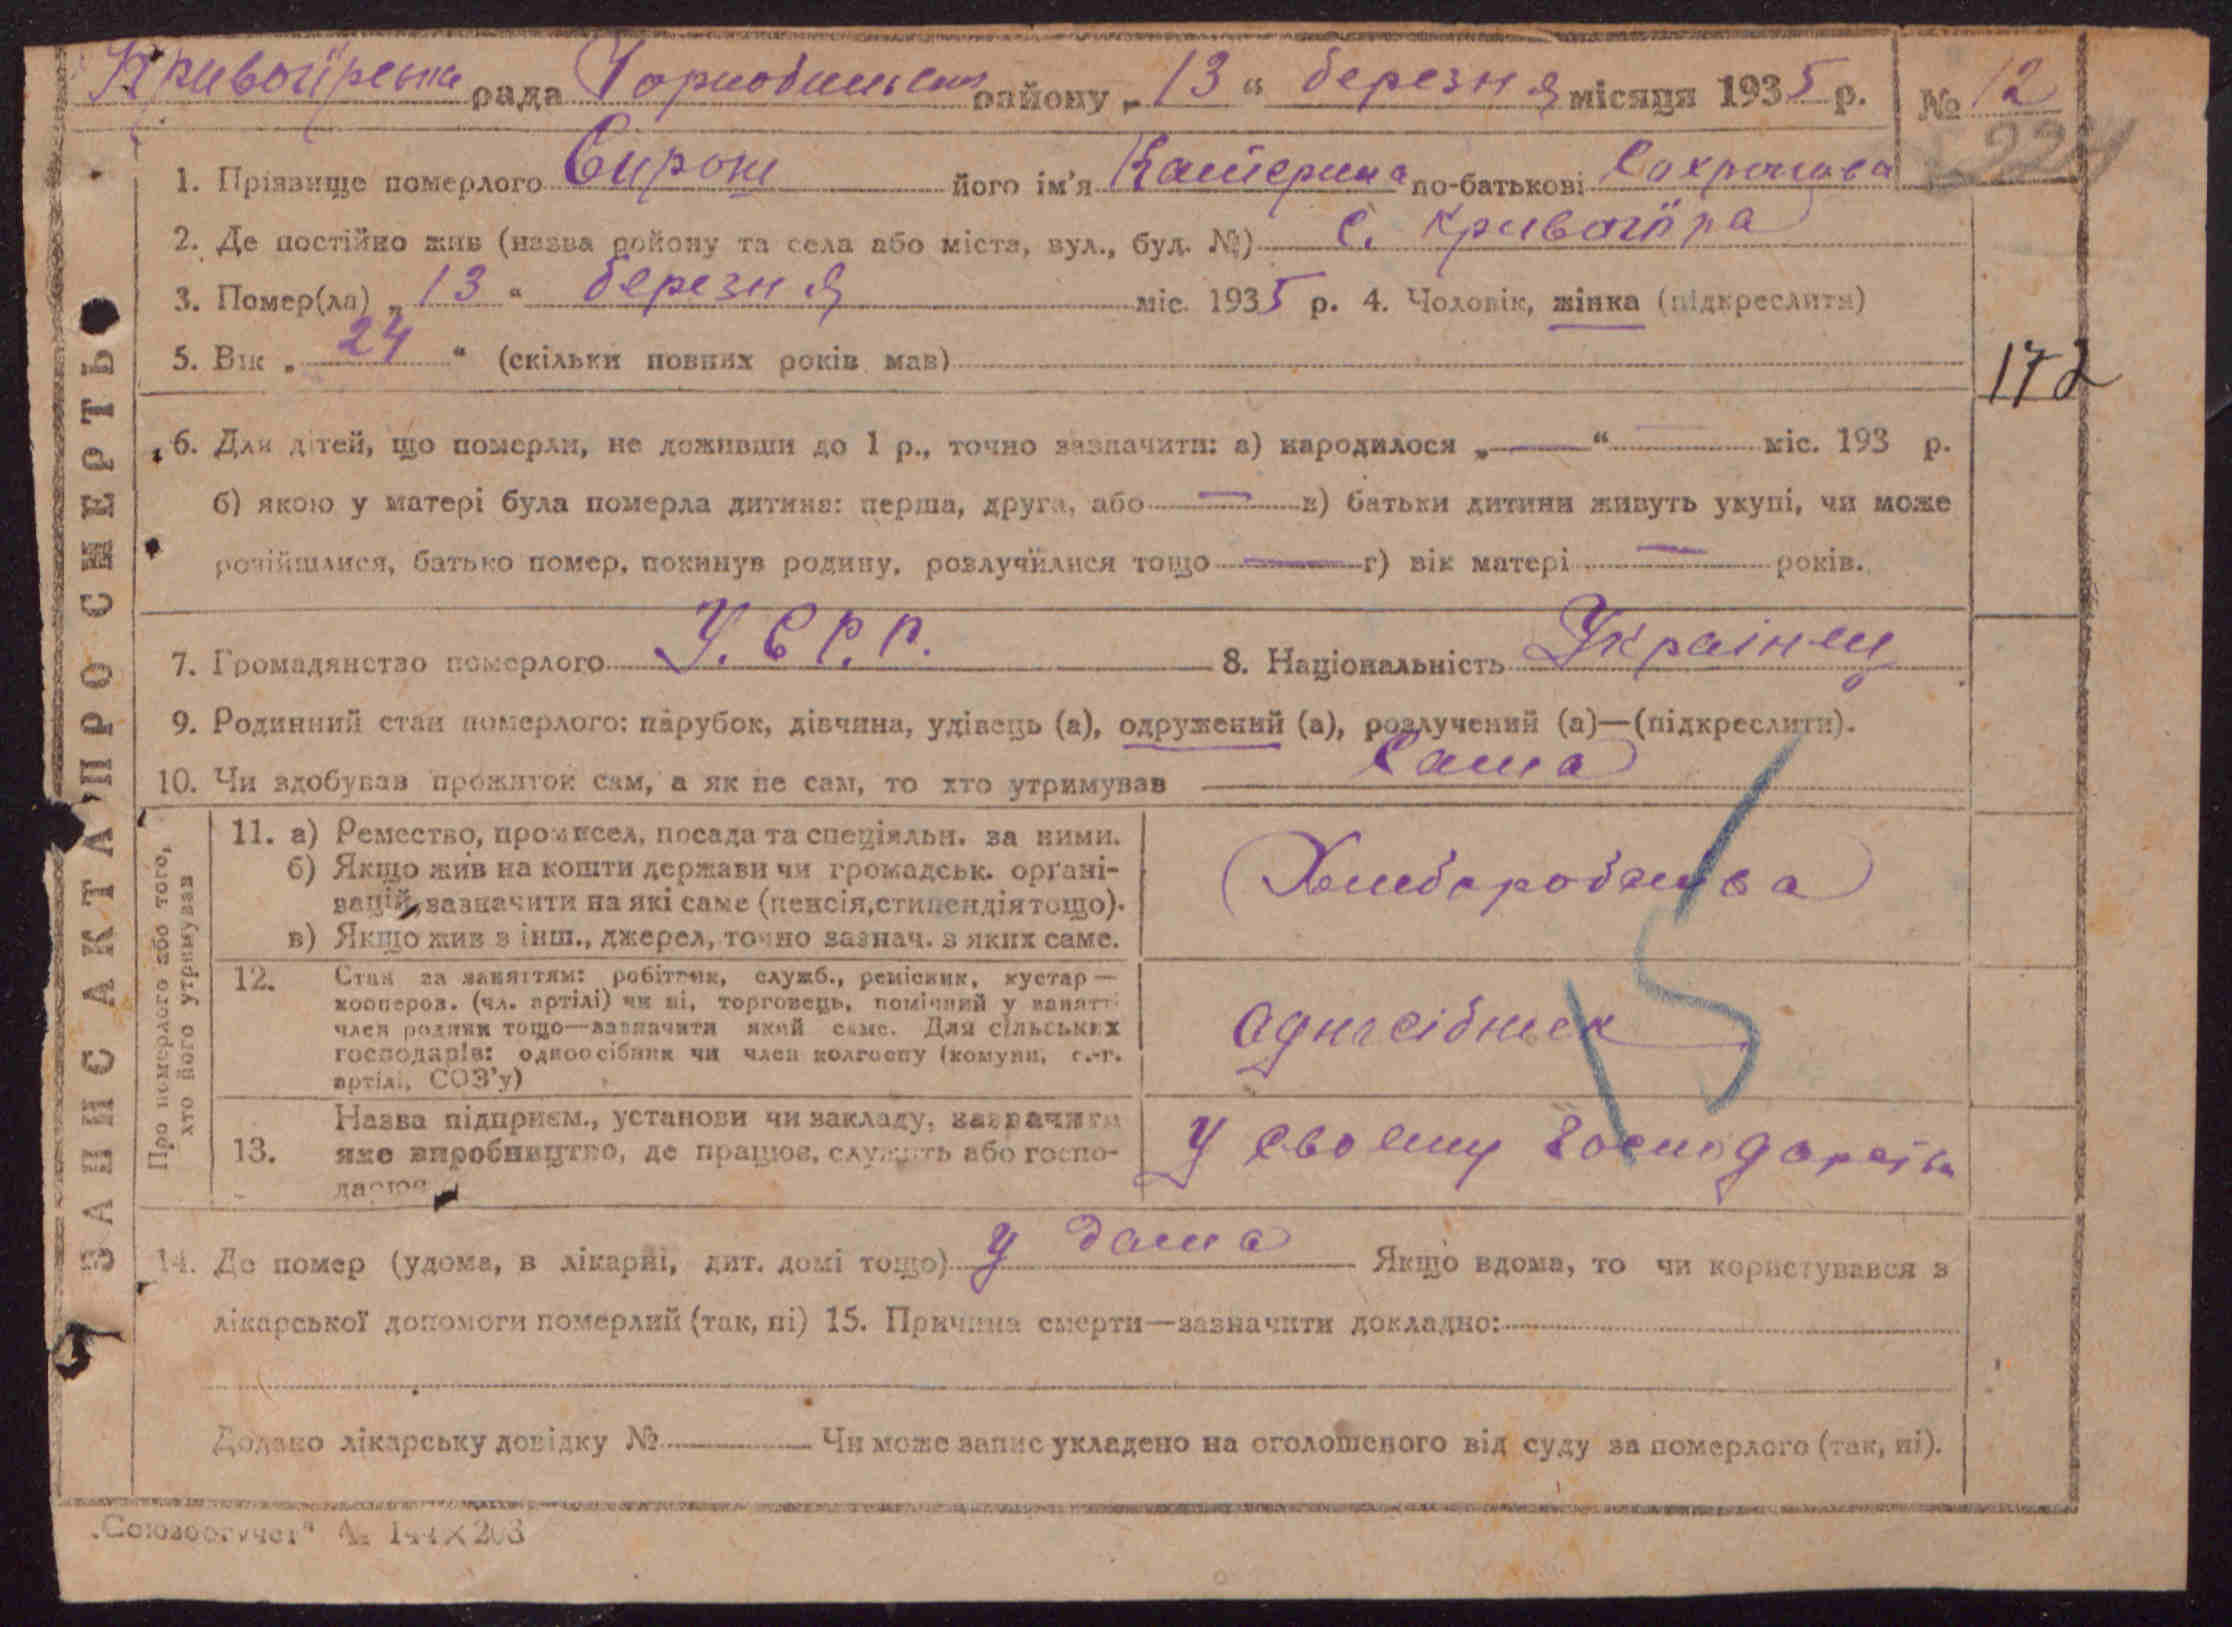 Кривогірська рада Чорнобильськ району „13“ березня місяця 1935 р. № 12
224
1. Прізвище померлого Сирош його ім'я Катерина по-батькові
2. Де постійно жив (назва району та села або міста, вул., буд. №) С. Кривагіра
3. Помер(ла) „13“ березня міс. 1935 р. 4. Чоловік, жінка (підкреслити)
5. Вік „24“ (скільки повних років мав)
172
6. Для дітей, що померли, не доживши до 1 р., точно зазначити: а) народилося „—“ міс. 193 р.
б) якою у матері була померла дитина: перша, друга, або — в) батьки дитини живуть укупі, чи може
розійшлися, батько помер, покинув родину, розлучилися тощо — г) вік матері — років.
7. Громадянство померлого У.С.Р.Р. 8. Національність Українец
9. Родинний стан померлого: парубок, дівчина, удівець (а), одружений (а), розлучений (а)—(підкреслити).
10. Чи здобував прожиток сам, а як не сам, то хто утримував Сама
ЗАПИС АКТА ПРО СМЕРТЬ
Про померлого або того, хто його утримував
11. а) Ремество, промисел, посада та спеціяльн. за ними.
б) Якщо жив на кошти держави чи громадськ. органі-
зацій, зазначити на які саме (пенсія, стипендія тощо).
в) Якщо жив з інш., джерел, точно зазнач. з яких саме.
Хлиборобства
12. Стан за заняттям: робітник, служб., ремісник, кустар—
коопероз. (чл. артілі) чи ні, торговець, помічний у занятті
член родини тощо—зазначити який саме. Для сільських
господарів: одноосібник чи член колгоспу (комуни, с.-г.
артілі, СОЗ'у)
Однасібнеск
13. Назва підприєм., установи чи закладу, зазначити
яке виробництво, де працює, служить або госпо-
дарює
У своему
14. Де помер (удома, в лікарні, дит. домі тощо) У дома Якщо вдома, то чи користувався з
лікарської допомоги померлий (так, ні) 15. Причина смерти—зазначити докладно:
Додано лікарську довідку № Чи може запис укладено на оголошеного від суду за померлого (так, ні).
„Союзоргучет“ № 144×203